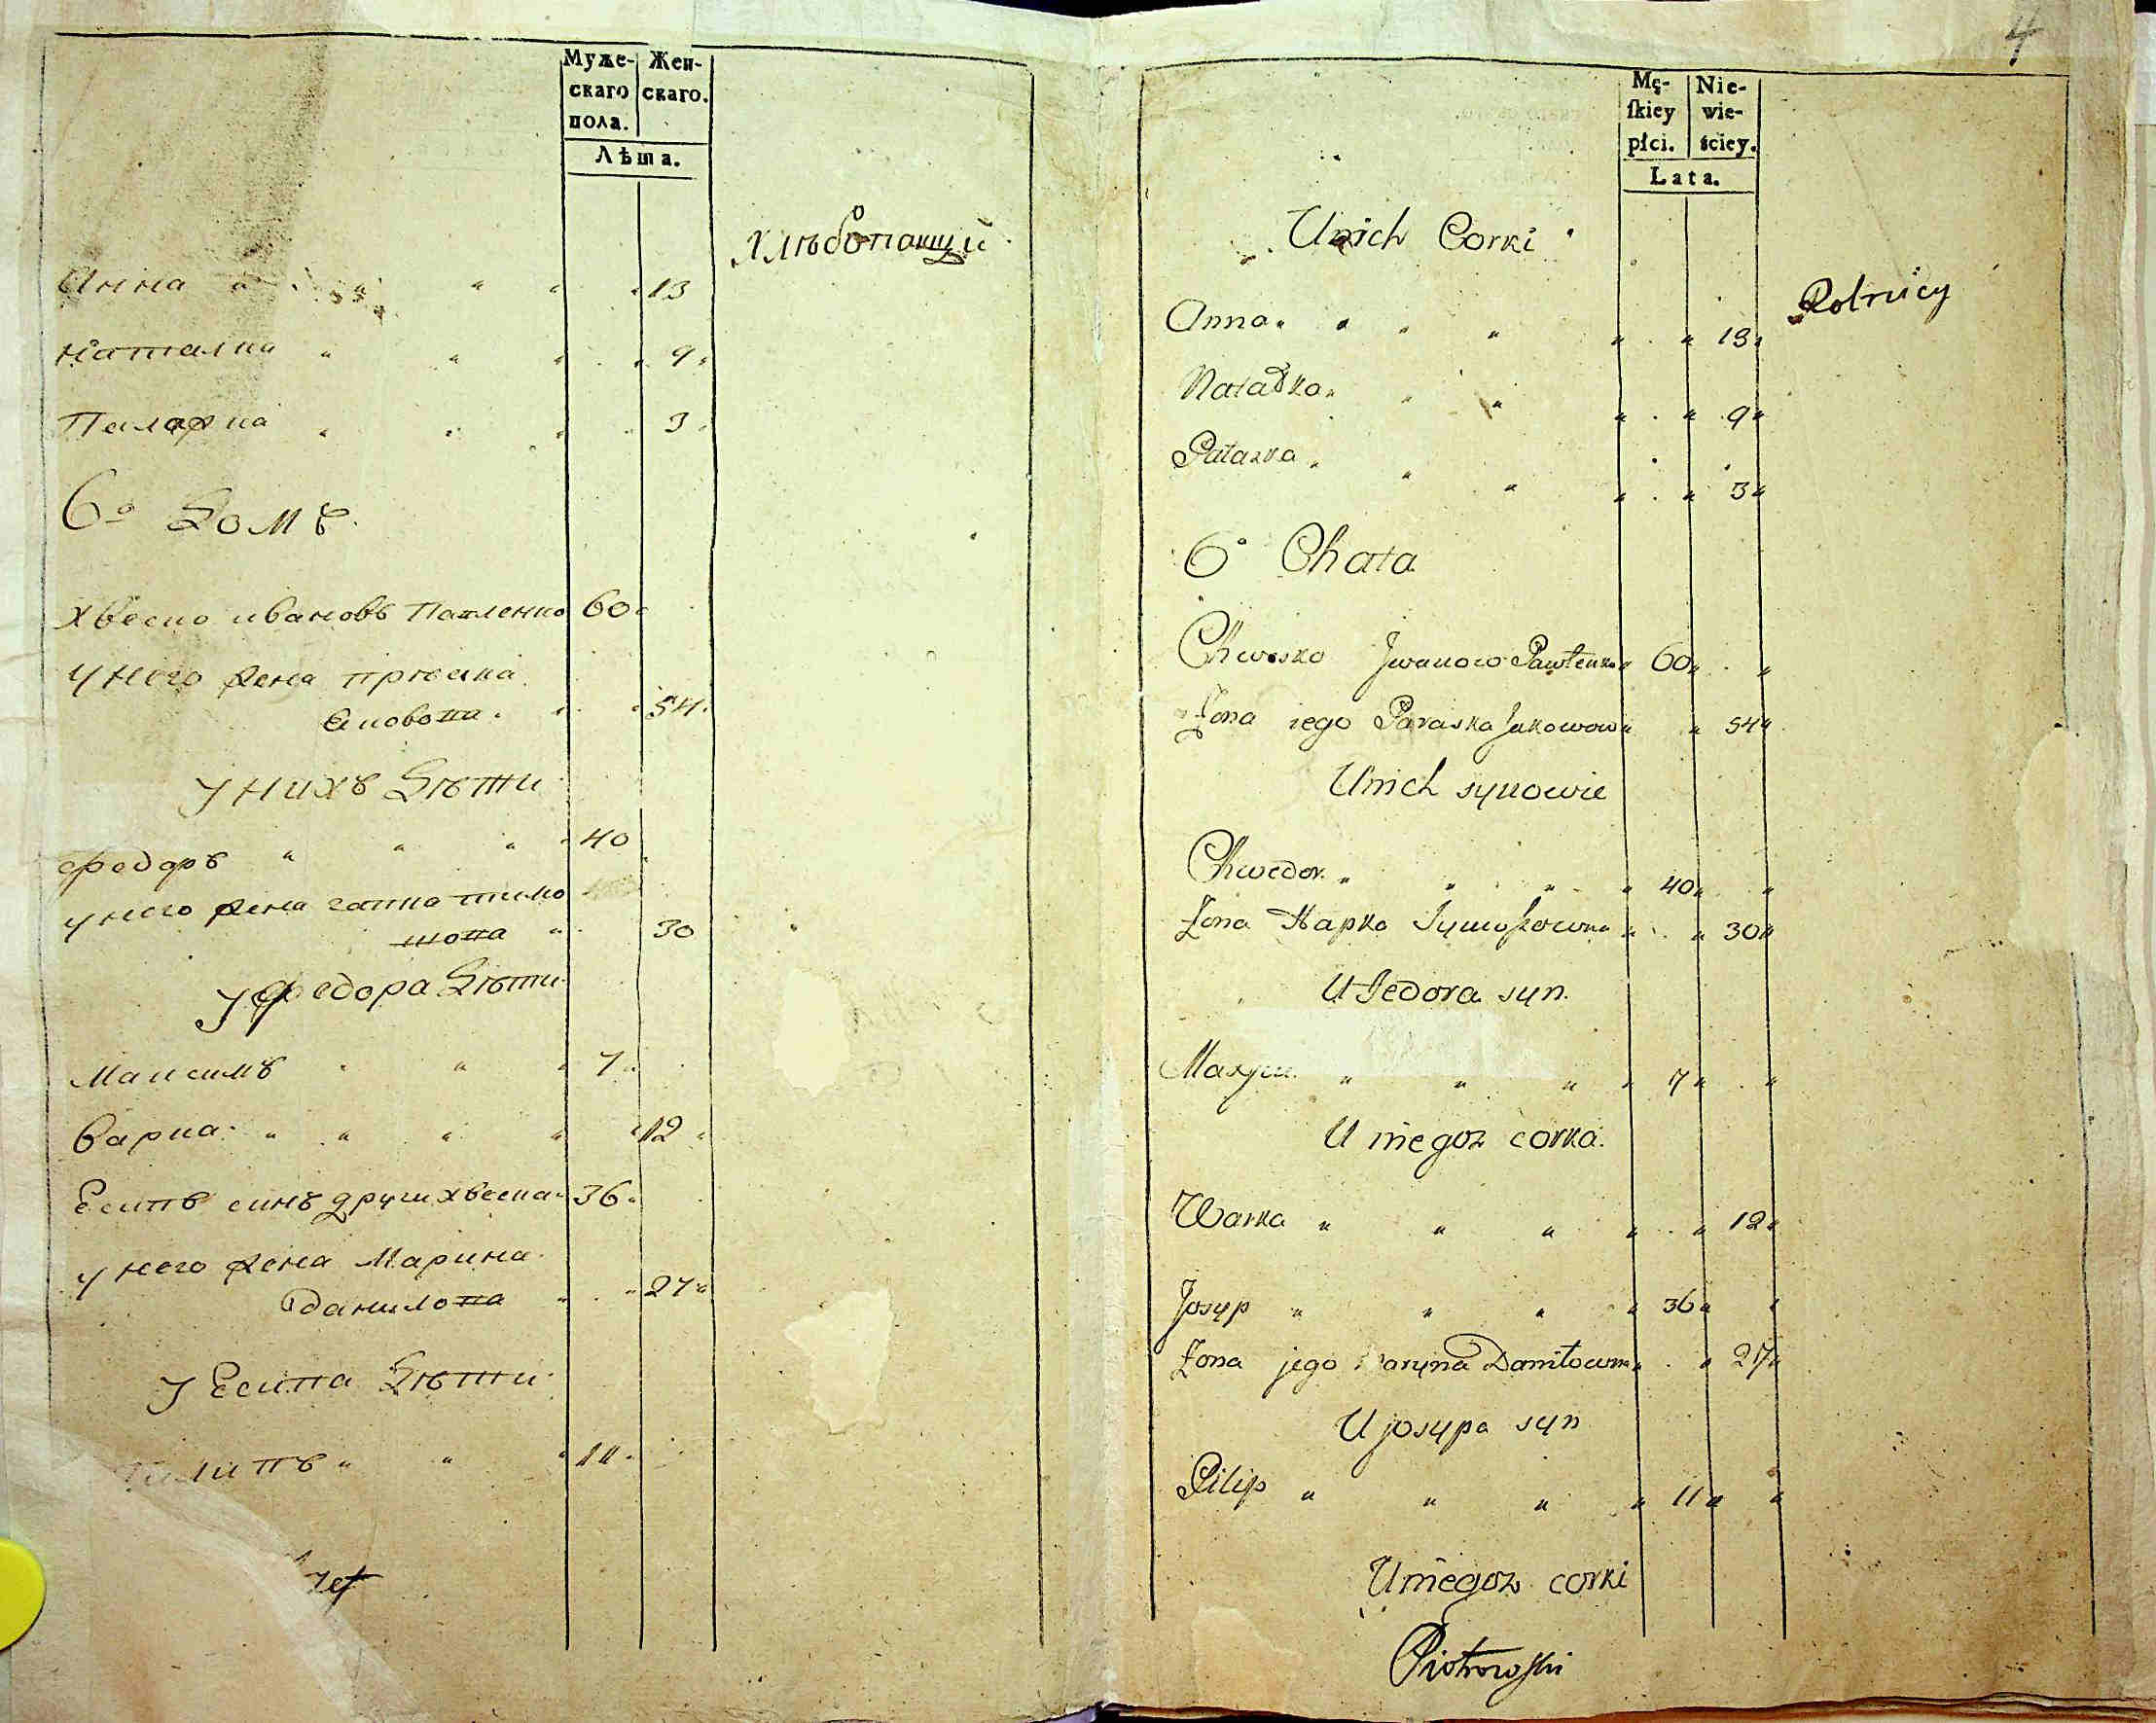 Муже-
скаго
пола.
Жен-
скаго.
Лѣта.
хлѣбопашцій
Анна " " " " 13
Наталка " " " 9
Палажка " " " 3
6º Домъ
Хвеско ивановъ Павленко 60
у него жена праска
Яковова 54
У нихъ Дѣти
Федоръ " " " 40
у него жена гапка тимо
шова " 30
У Федора Дѣти
Максимъ " " 7
Варка " " " " 12
Есипъ синъ други хвеска 36
у него жена Марина
данилова " 27
У Есипа Дѣти
Пилипъ " " 11
4
Mę-
skiey
płci.
Nie-
wie-
ściey.
Lata.
Unich Corki
Rolnicy
Anna " " " " 13
Natałka " " " 9
Pałaszka " " " 3
6º Chata
Chwesko Jwanow Pawłenko 60
Żona iego Paraska Jakowow 54
Unich synowie
Chwedor " " " 40
Żona Hapka Tymoszowna 30
U Fedora syn.
Maxym " " " 7
U niegoz corka.
Warka " " " 12
Josyp " " " 36
Żona jego Maryna Daniłowna 27
U josypa syn
Pilip " " " 11
U niegoz corki
Piotrowski